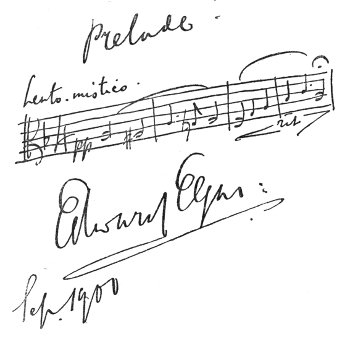 Prelude.
Lento. mistico.
pp
rit
Edward Elgar:
Sep. 1900